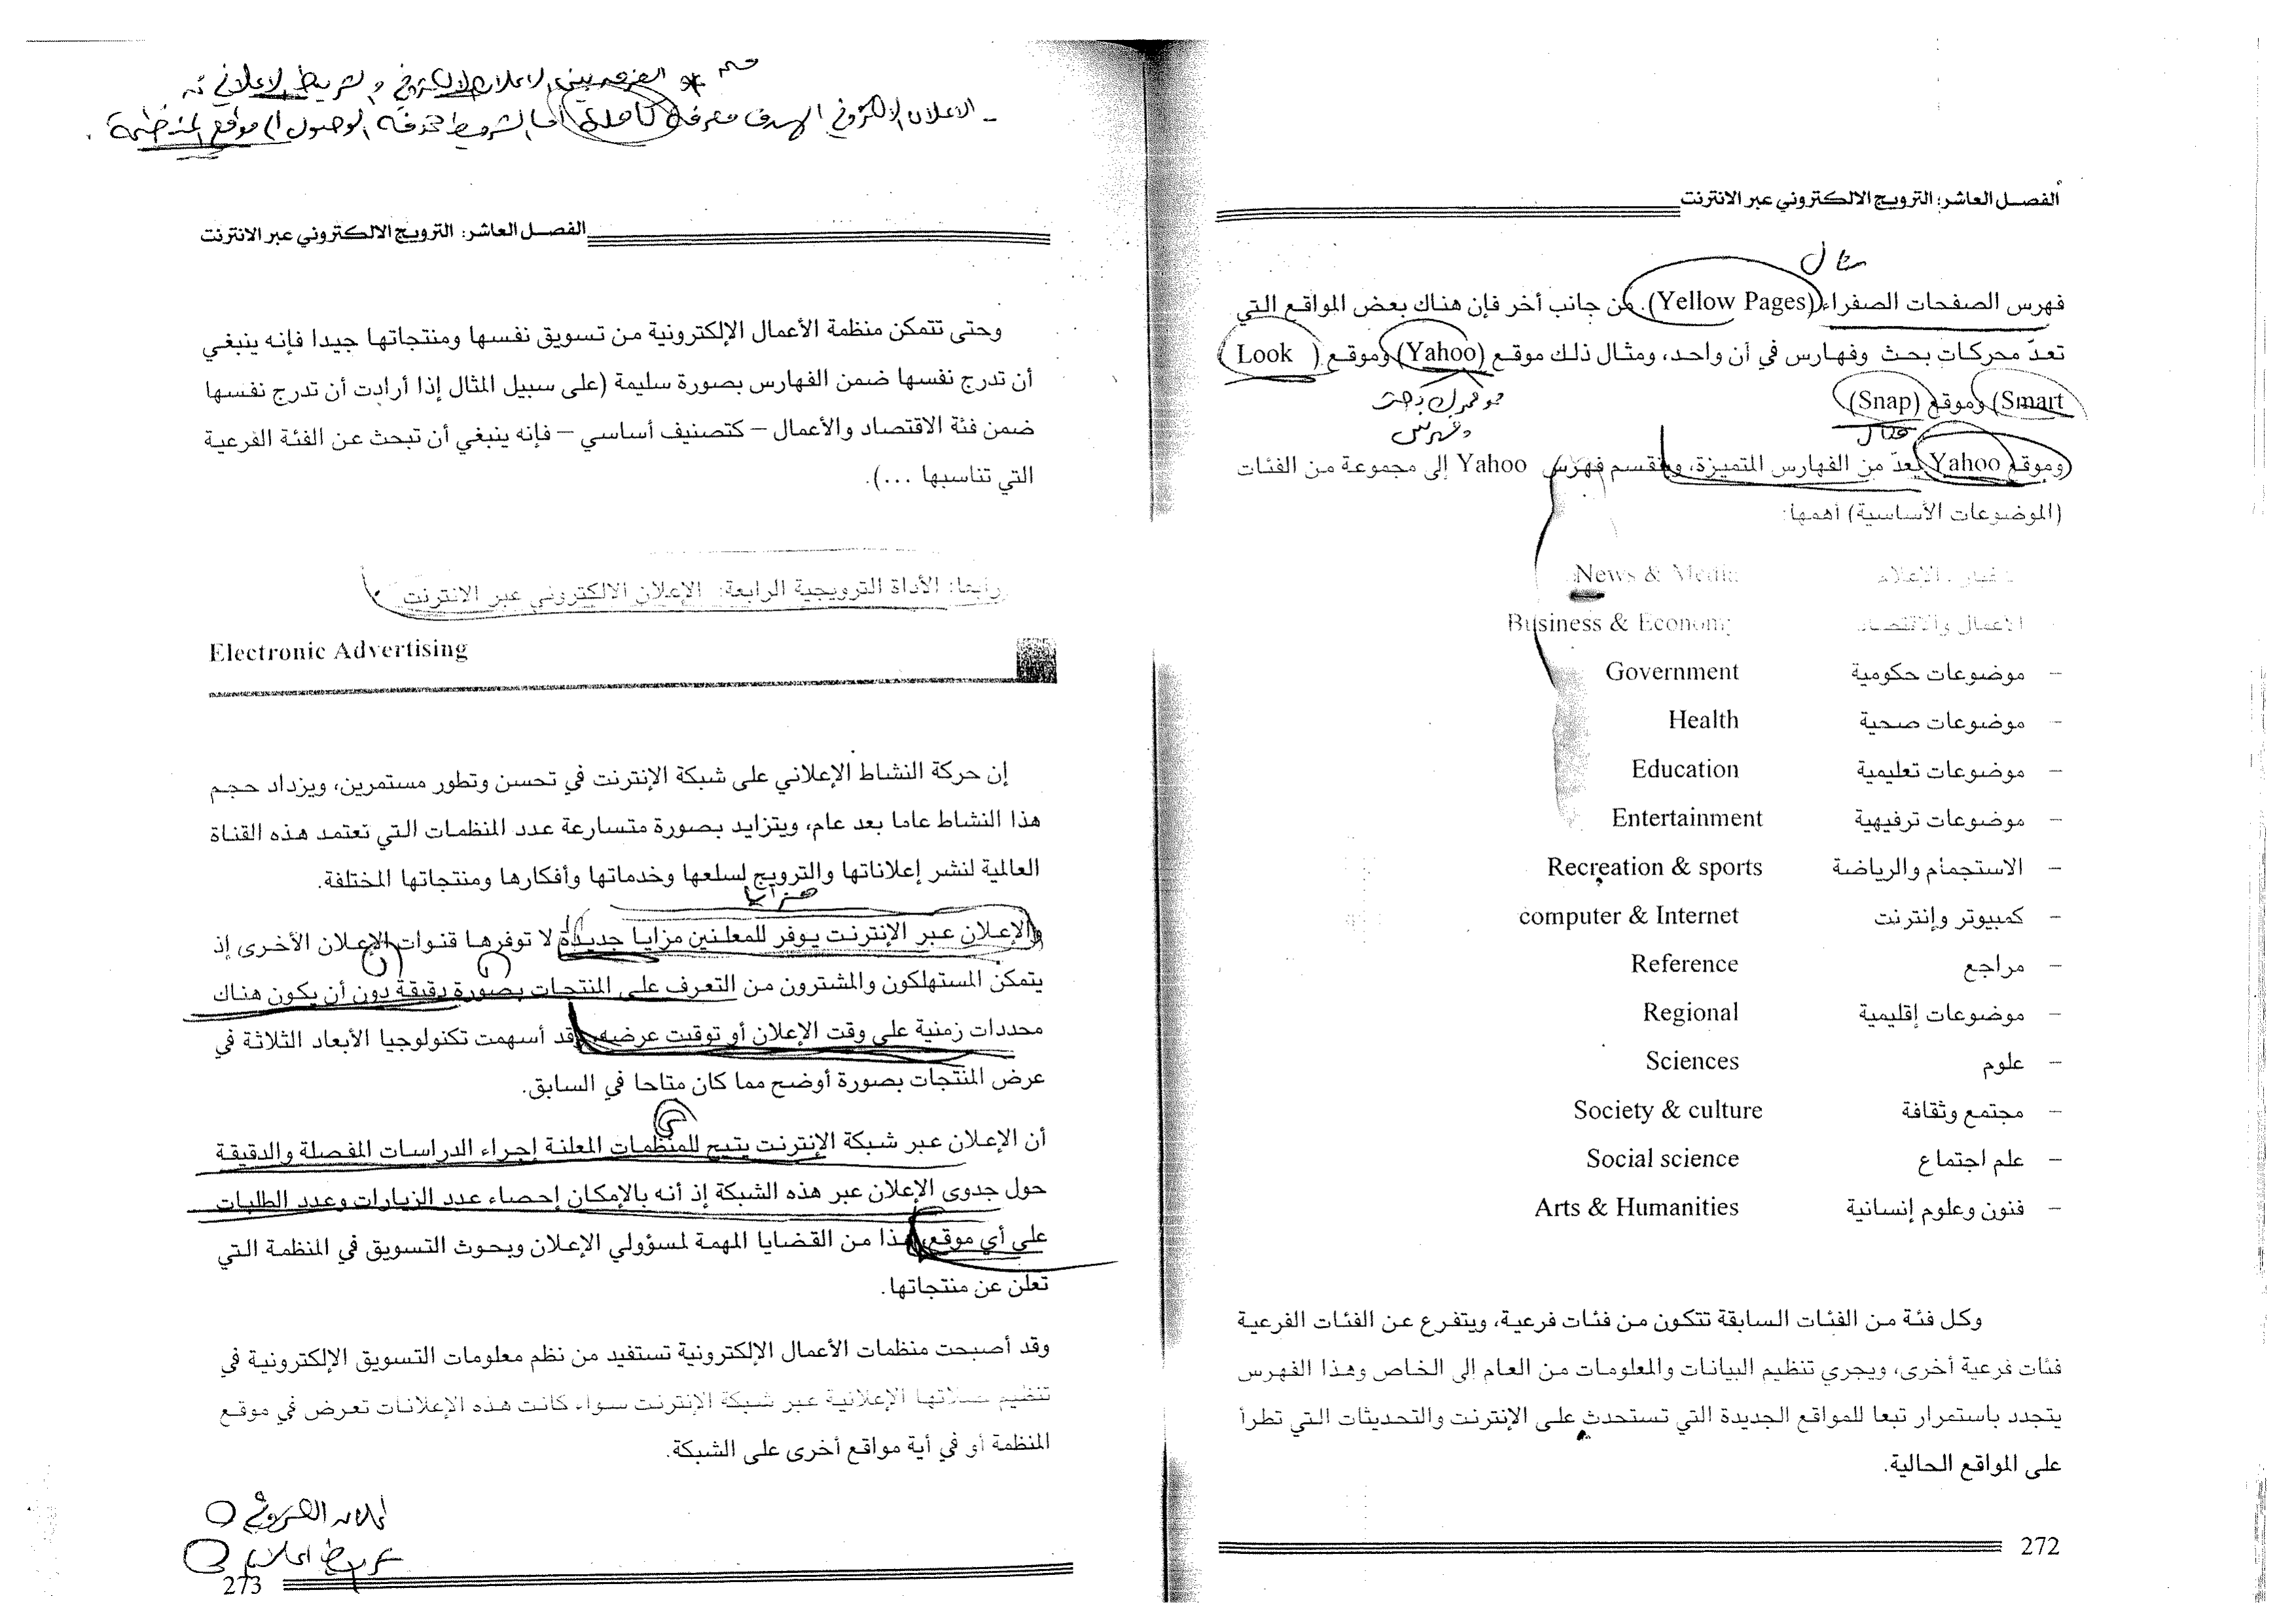 الفصل العاشر: الترويج الالكتروني عبر الانترنت
مثال
فهرس الصفحات الصفراء (Yellow Pages). من جانب أخر فإن هناك بعض المواقع التي
تعدّ محركات بحث وفهارس في أن واحد، ومثال ذلك موقع (Yahoo) وموقع (Look
Smart) وموقع (Snap)
هو محرك بحث
وفهرس
مثال
وموقع Yahoo يعدّ من الفهارس المتميزة، وينقسم فهرس Yahoo إلى مجموعة من الفئات
(الموضوعات الأساسية) أهمها:
News & Media
الأعمال والاقتصاد Business & Economy
– موضوعات حكومية Government
– موضوعات صحية Health
– موضوعات تعليمية Education
– موضوعات ترفيهية Entertainment
– الاستجمام والرياضة Recreation & sports
– كمبيوتر وإنترنت computer & Internet
– مراجع Reference
– موضوعات إقليمية Regional
– علوم Sciences
– مجتمع وثقافة Society & culture
– علم اجتماع Social science
– فنون وعلوم إنسانية Arts & Humanities
وكل فئة من الفئات السابقة تتكون من فئات فرعية، ويتفرع عن الفئات الفرعية
فئات فرعية أخرى، ويجري تنظيم البيانات والمعلومات من العام إلى الخاص وهذا الفهرس
يتجدد باستمرار تبعا للمواقع الجديدة التي تستحدث على الإنترنت والتحديثات التي تطرأ
على المواقع الحالية.
272
* الفرق بين الاعلان الالكتروني والشريط الاعلاني
- الاعلان الالكتروني الهدف معرفة كاملة أما الشريط هدفه الوصول الى موقع المنظمة.
الفصل العاشر: الترويج الالكتروني عبر الانترنت
وحتى تتمكن منظمة الأعمال الإلكترونية من تسويق نفسها ومنتجاتها جيدا فإنه ينبغي
أن تدرج نفسها ضمن الفهارس بصورة سليمة (على سبيل المثال إذا أرادت أن تدرج نفسها
ضمن فئة الاقتصاد والأعمال – كتصنيف أساسي – فإنه ينبغي أن تبحث عن الفئة الفرعية
التي تناسبها ...).
رابعا: الأداة الترويجية الرابعة: الإعلان الالكتروني عبر الانترنت
Electronic Advertising
إن حركة النشاط الإعلاني على شبكة الإنترنت في تحسن وتطور مستمرين، ويزداد حجم
هذا النشاط عاما بعد عام، ويتزايد بصورة متسارعة عدد المنظمات التي تعتمد هذه القناة
العالمية لنشر إعلاناتها والترويج لسلعها وخدماتها وأفكارها ومنتجاتها المختلفة.
مزايا
والإعلان عبر الإنترنت يوفر للمعلنين مزايا جديدة لا توفرها قنوات الإعلان الأخرى إذ
يتمكن المستهلكون والمشترون من التعرف على المنتجات بصورة دقيقة دون أن يكون هناك
محددات زمنية على وقت الإعلان أو توقيت عرضه، وقد أسهمت تكنولوجيا الأبعاد الثلاثة في
عرض المنتجات بصورة أوضح مما كان متاحا في السابق.
أن الإعلان عبر شبكة الإنترنت يتيح للمنظمات المعلنة إجراء الدراسات المفصلة والدقيقة
حول جدوى الإعلان عبر هذه الشبكة إذ أنه بالإمكان إحصاء عدد الزيارات وعدد الطلبات
على أي موقع، وهذا من القضايا المهمة لمسؤولي الإعلان وبحوث التسويق في المنظمة التي
تعلن عن منتجاتها.
وقد أصبحت منظمات الأعمال الإلكترونية تستفيد من نظم معلومات التسويق الإلكترونية في
تنظيم حملاتها الإعلانية عبر شبكة الإنترنت سواء كانت هذه الإعلانات تعرض في موقع
المنظمة أو في أية مواقع أخرى على الشبكة.
اعلان الكتروني
شريط اعلاني
273